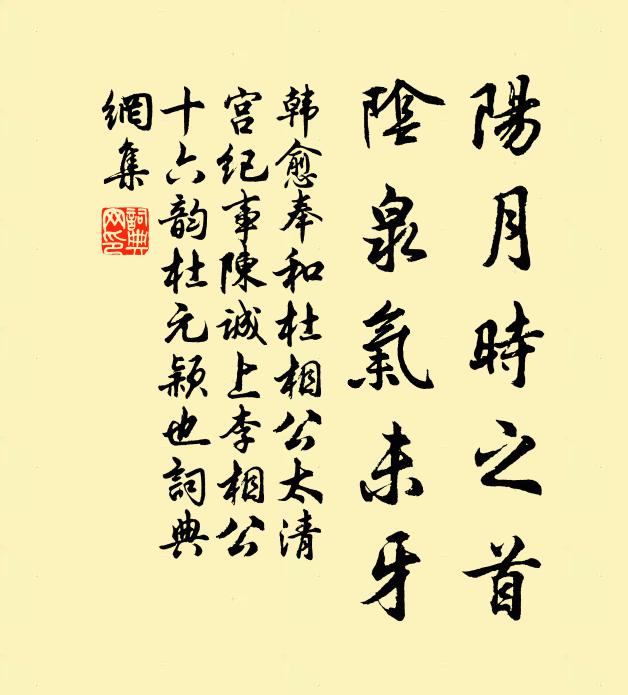 陽月時之首
陰泉氣未牙
韩愈奉和杜相公太清
宮纪事陳诚上李相公
十六韵杜元颖也詞典
網集
詞典
网印